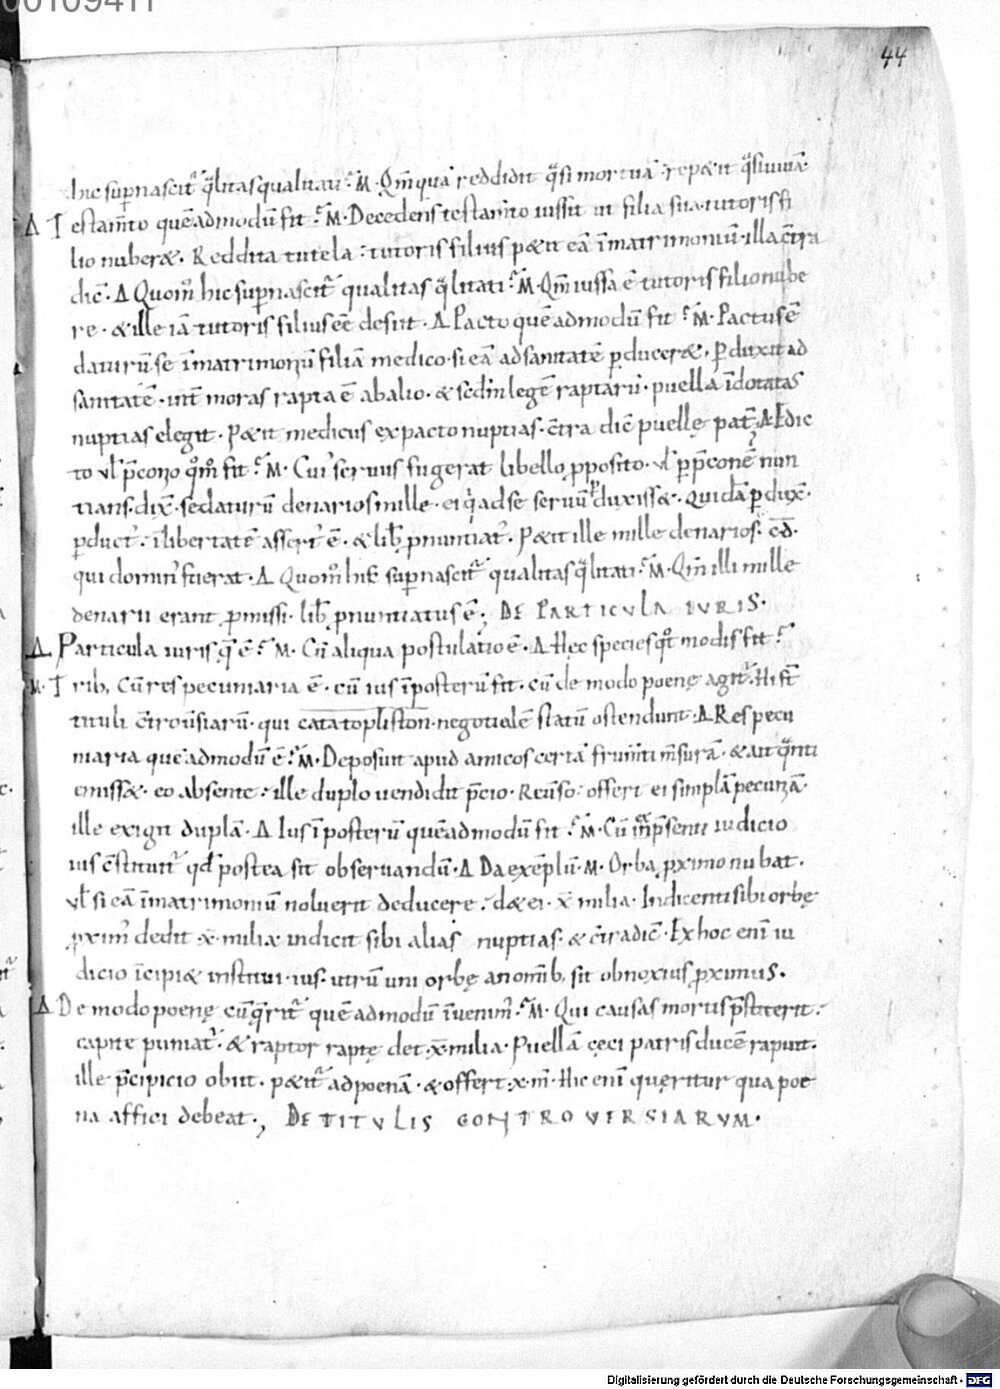 00109411
44
hic sup̄nascit᷑ q̄litas qualitati· M· Qm̄ qua reddidit q̄si mortua repetit q̄si uiuā·
Δ Testam̄to quēadmodū fit· M· Decedens testam̄to iussit ut filia sua tutoris fi
lio nuberet· Reddita tutela tutoris filius petit eā ī matrimoniū· illa c̄tra
dic̄· Δ Quom̄ hic sup̄nascit᷑ qualitas q̄litati· M· Qm̄ iussa ē tutoris filio nube
re· & ille iā tutoris filius ēē desiit· Δ Pacto quēadmodū fit· M· Pactus ē
daturū se ī matrimoniū filiā medico· si eā ad sanitatē ꝑduceret· ꝑduxit ad
sanitatē· int̄ moras rapta ē ab alio· & scdm̄ legē raptarū· puella īdotatas
nuptias elegit· Petit medicus ex pacto nuptias· c̄tra dic̄ puellę pat̄· Δ Edic
to ul̄ p̄conio qm̄o fit· M· Cui seruus fugerat libello ꝓposito· ul̄ ꝑ p̄conē nun
tians· dix̄· se daturū denarios mille· ei q̄ ad se seruū ꝑduxisset· Quidā ꝑdux̄·
ꝑduct᷑· ī libertatē assert᷑ ē· & lib̄ ꝓnuntiat᷑· Petit ille mille denarios· c̄d̄·
qui domin᷑ fuerat· Δ Quom̄ hic sup̄nascit᷑ qualitas q̄litati· M· Qm̄ illi mille
denarii erant ꝓmissi· lib̄ ꝓnuntiatus ē; DE PARTICULA IURIS·
Δ· Particula iuris q̄ ē· M· Cū aliqua postulatio ē· Δ Hęc species qt̄ modis fit·
M· Trib; Cū res pecuniaria ē· cū ius ī posterū fit· cū de modo poenę agit᷑· Hi st̄
tituli c̄trouersiarū· qui catatopliston· negotialē statū ostendunt· Δ Res pecu
niaria quēadmodū ē· M· Deposuit apud amicos certā frum̄ti m̄surā· & ait q̄nti
emisset· eo absente· ille duplo uendidit p̄cio· Reuerso· offert ei simplā pecuniā·
ille exigit duplā· Δ Ius ī posterū quēadmodū fit· M· Cū p̄senti iudicio
ius c̄stituit᷑ qd̄ postea sit obseruandū· Δ Da exēplū· M· Orba ꝓximo nubat·
ul̄ si eā ī matrimoniū noluerit deducere· det ei· x̄ milia· Indicenti sibi orbę
ꝓxim᷑ dedit x̄ milia indicit sibi alias nuptias· & c̄tradic̄· Ex hoc enī iu
dicio īcipiet institui ius· utrū uni orbę an omib; sit obnoxius ꝓximus·
Δ De modo poenę cū q̄rit᷑ quēadmodū īuenim᷑· M· Qui causas mortis p̄stiterit·
capite puniat᷑· & raptor raptę det x̄ milia· Puellā cęci patris ducē rapuit·
ille p̄cipicio obiit· petit᷑ ad poenā· & offert· x̄· m̄· Hic enī quęritur qua poe
na affici debeat·; DE TITULIS CONTROVERSIARVM·
Digitalisierung gefördert durch die Deutsche Forschungsgemeinschaft · DFG